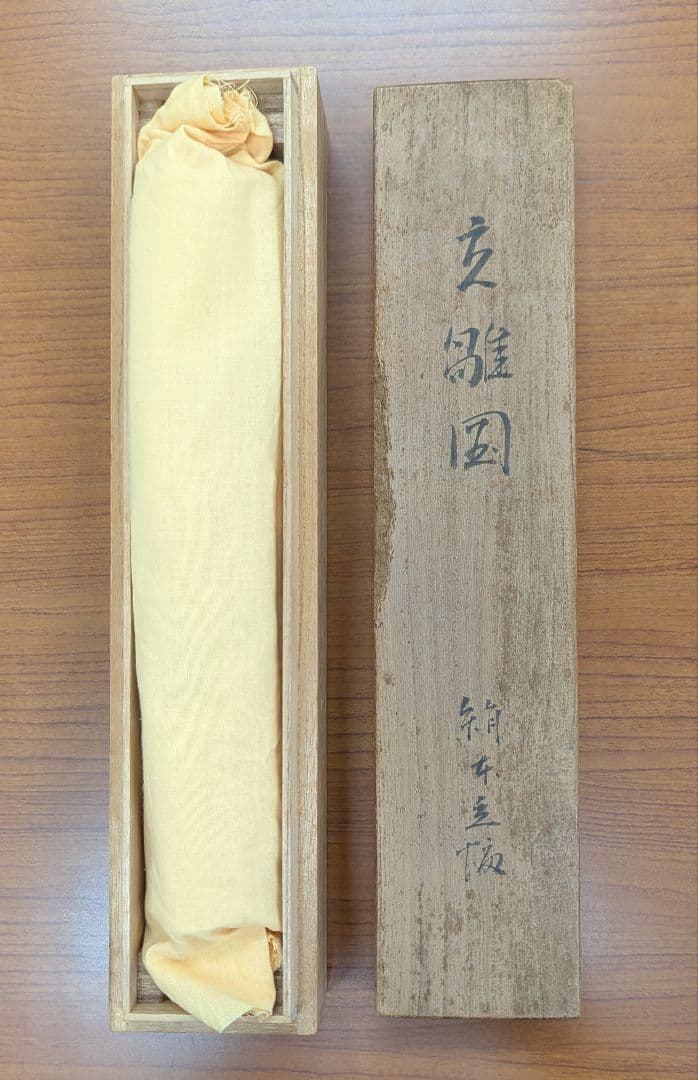 立雛図
絹本立幅